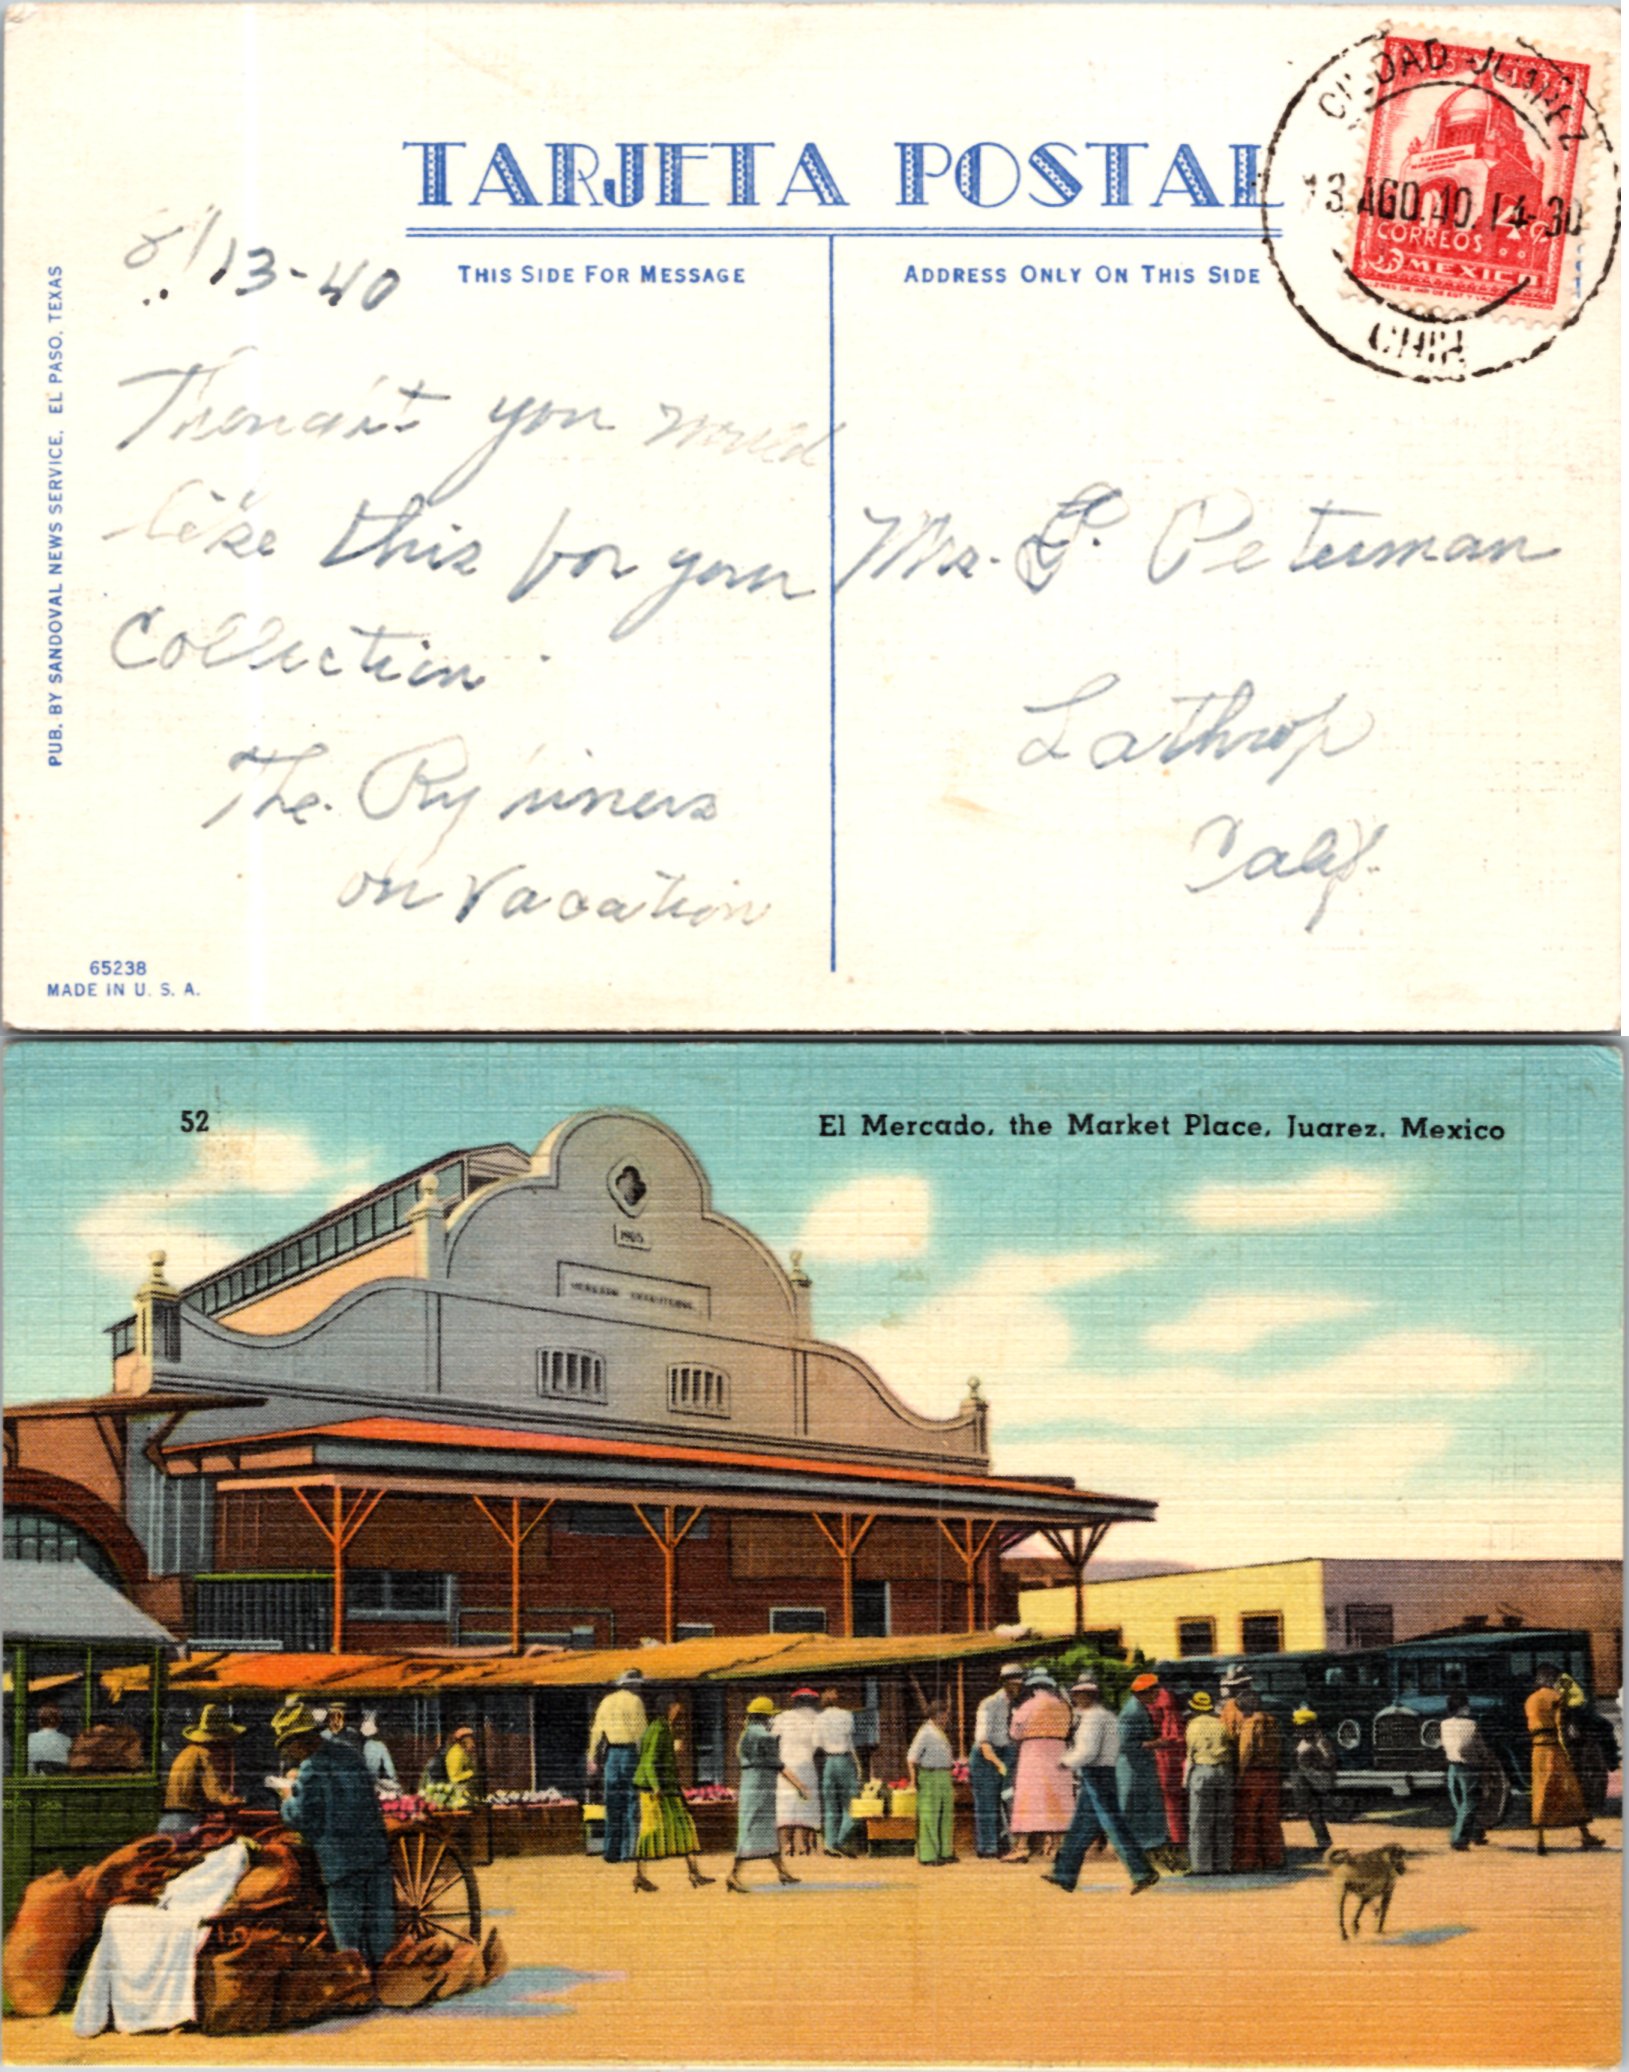 TARJETA POSTAL
THIS SIDE FOR MESSAGE
ADDRESS ONLY ON THIS SIDE
CIUDAD JUAREZ
13 AGO. 40. 14-30
CHIH
4c
CORREOS
MEXICO
8/13-40
you would
like this for your
Collection.
The
on Vacation
Mrs. P. Peterman
Lathrop
Calif.
PUB. BY SANDOVAL NEWS SERVICE, EL PASO, TEXAS
65238
MADE IN U. S. A.
52
El Mercado, the Market Place, Juarez, Mexico
1905
MERCADO